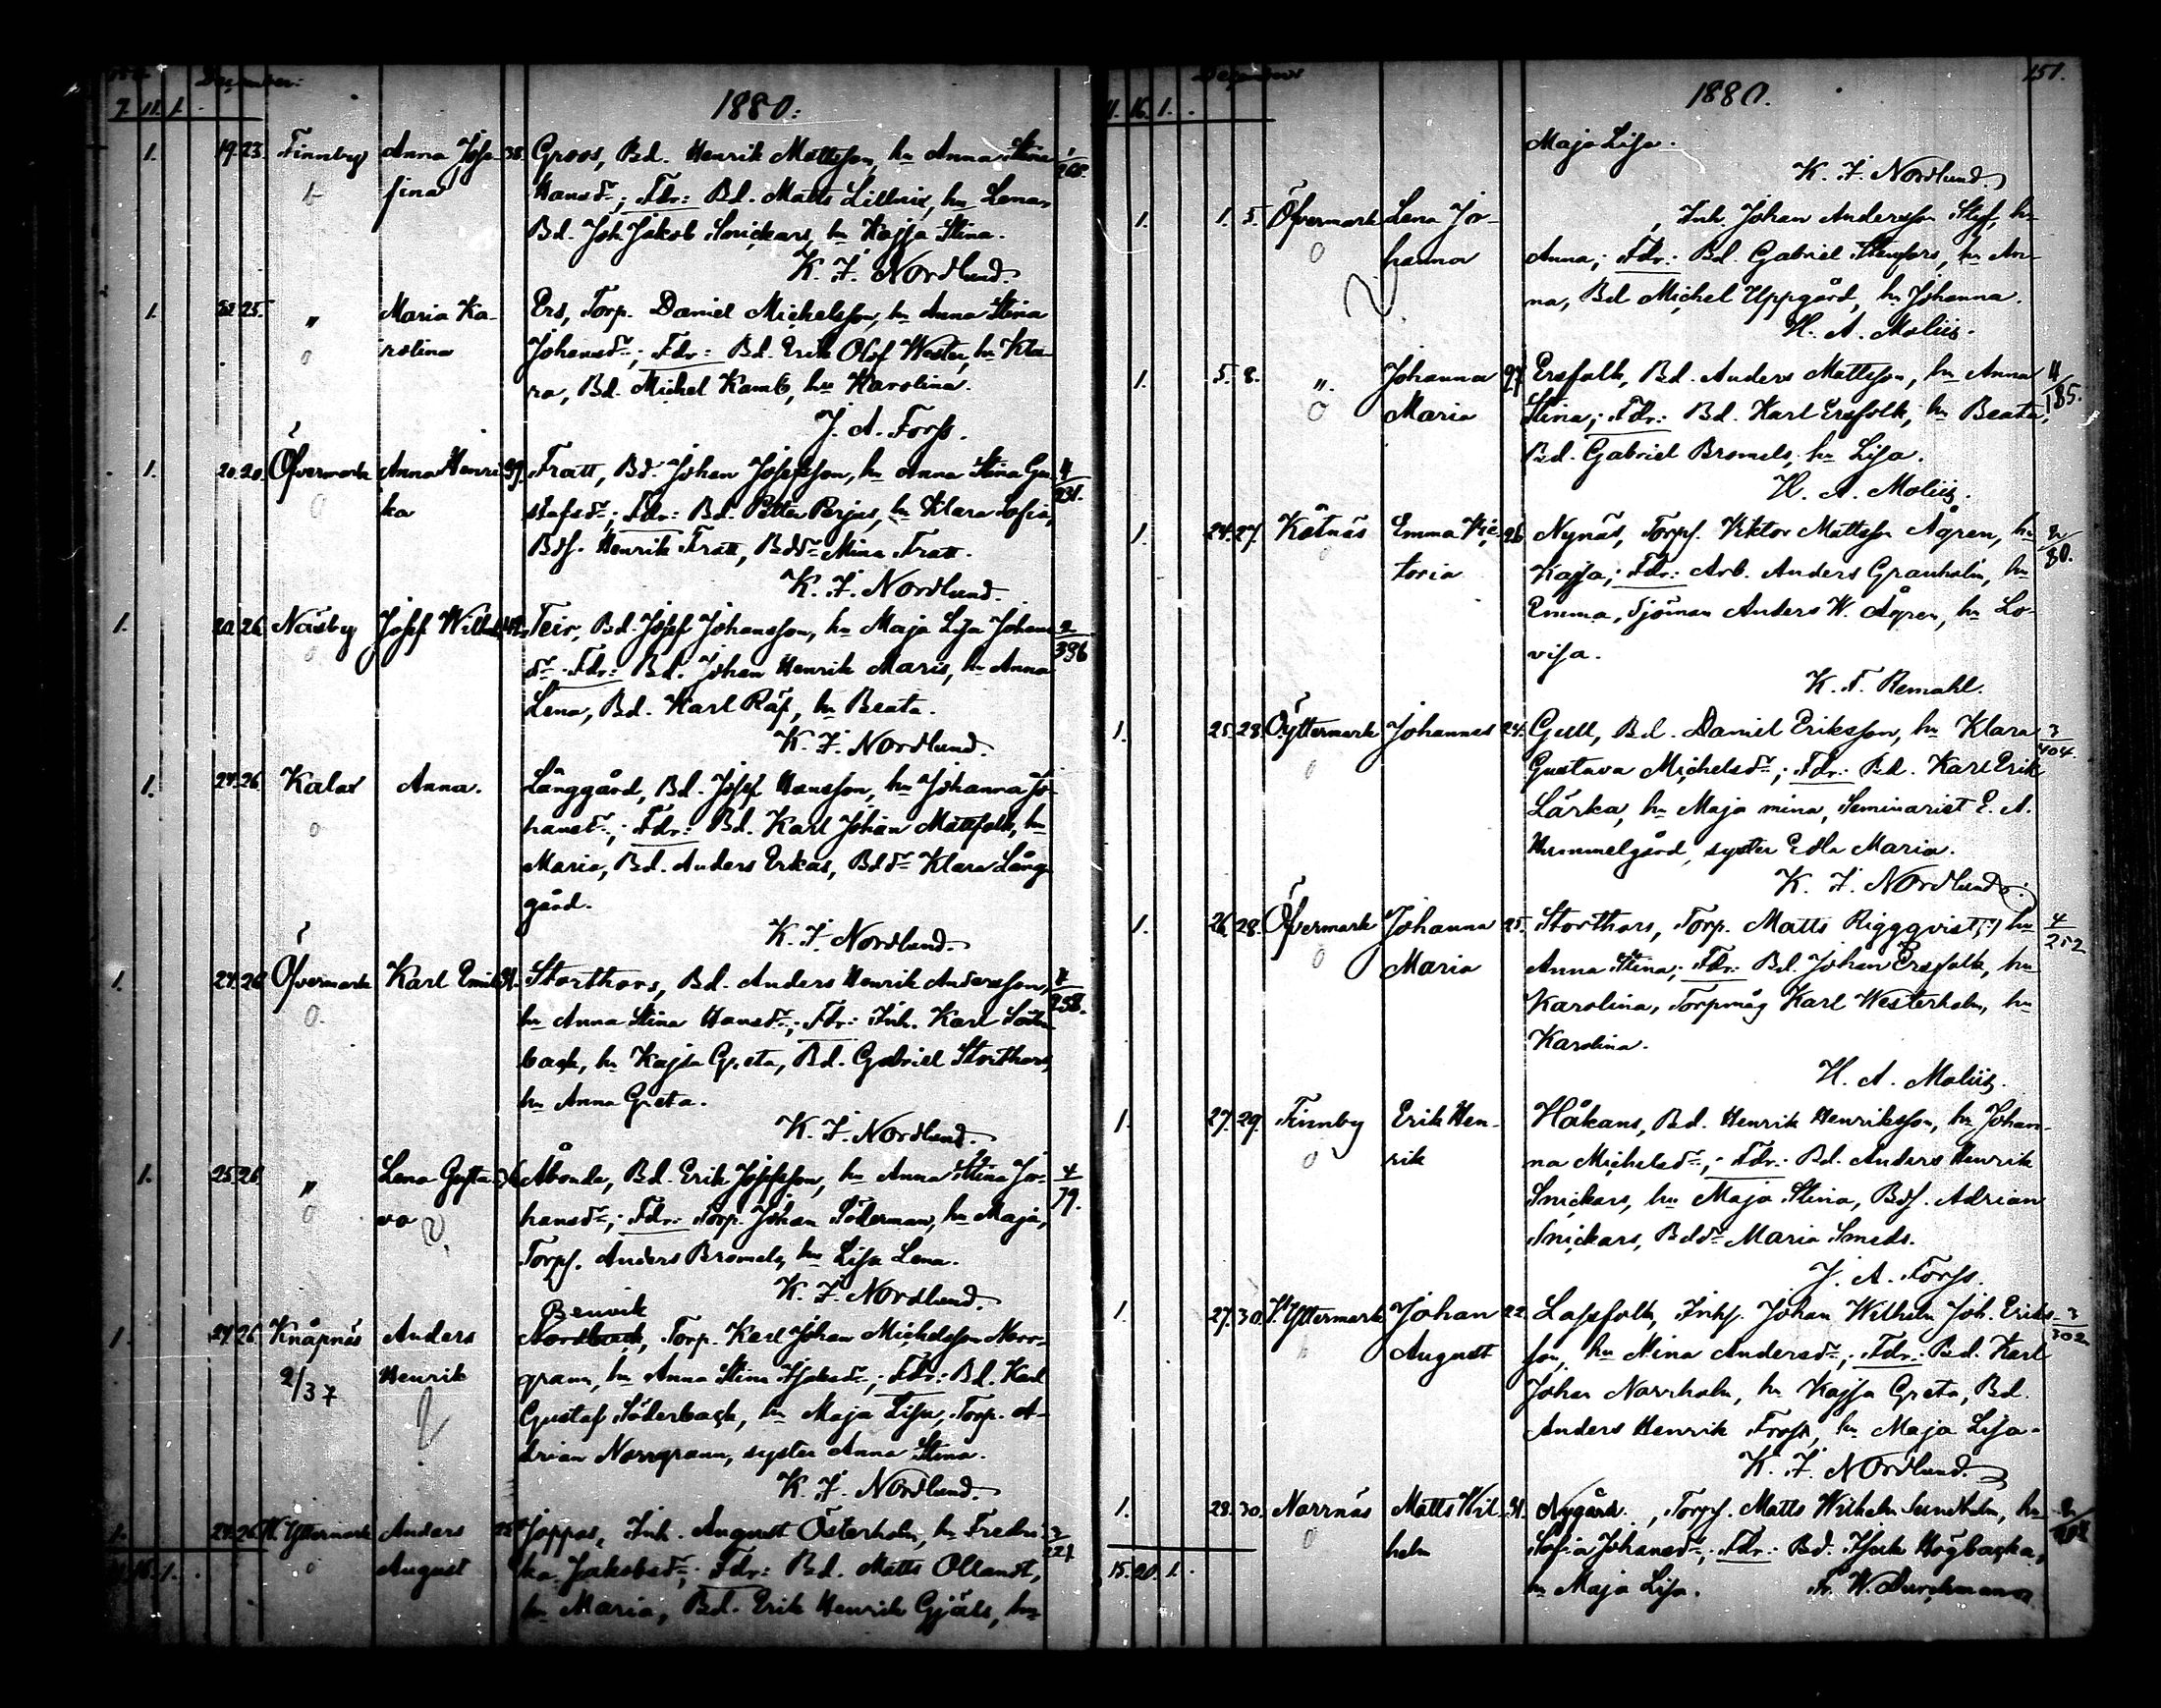 December.
7. 11. 1.
1880.
1. 19. 23. Finnby Anna Jose- 38. Groos, Bd. Henrik Mattsson, hu Anna Stina
fina Hansdr; Fdr: Bd. Matts Lillnix, hu Lena,
Bd. Joh. Jakob Snickars, hu Kajsa Stina.
K. J. Nordlund.
1. 25. " Maria Ka- Ers, Torp. Daniel Michelsson, hu Anna Stina
0 rolina Johansdr; Fdr: Bd. Erik Olof Wester, hu Kla-
ra, Bd. Michel Kamb, hu Karolina.
J. A. Forss.
1. 20. 20. Öfvermark Anna Henri- 39. Fratt, Bd. Johan Josefsson, hu Anna Stina Gu- 4/231.
0 ka stafsdr; Fdr: Bd. Petter Perjus, hu Klara Sofia,
Bds. Henrik Fratt, Bddr Mina Fratt.
K. J. Nordlund.
1. 20. 26. Näsby Josef Wilhelm Teir, Bd. Josef Johansson, hu Maja Lisa Johans- 2/396
0 dr. Fdr: Bd. Johan Henrik Maris, hu Anna
Lena, Bd. Karl Räf, hu Beata.
K. J. Nordlund.
1. 24. 26. Kalax Anna. Långgård, Bd. Josef Hansson, hu Johanna Jo-
0 hansdr; Fdr: Bd. Karl Johan Mattfolk, hu
Maria, Bd. Anders Erkas, Bddr Klara Lång-
gård.
K. J. Nordlund.
1. 24. 26. Öfvermark Karl Emil 31. Storthors, Bd. Anders Henrik Andersson, 4/258.
0. hu Anna Stina Hansdr; Fdr: Inh. Karl Söder-
back, hu Kajsa Greta, Bd. Gabriel Storthors,
hu Anna Greta.
K. J. Nordlund.
1. 25. 26. " Lena Gusta- Åbonde, Bd. Erik Josefsson, hu Anna Stina Jo- 4/79.
0 va hansdr; Fdr: Torp. Johan Söderman, hu Maja,
Torps. Anders Bromels, hu Lisa Lena.
K. J. Nordlund.
Benvik
1. 24. 26. Knåpnäs Anders Nordback, Torp. Karl Johan Michelsson Norr-
2/37 Henrik grann, hu Anna Stina Isaksdr; Fdr: Bd. Karl
Gustaf Söderback, hu Maja Lisa, Torp. A-
drian Norrgrann, syster Anna Stina.
K. J. Nordlund.
1. 24. 26. Yttermark Anders Joppas, Inh. August Österholm, hu Fredri-
0 August ka Jakobsdr; Fdr: Bd. Matts Ollandt,
hu Maria, Bd. Erik Henrik Gjäls, hu
11. 16. 1.
December
151.
11. 16. 1.
1880.
Maja Lisa.
K. J. Nordlund.
1. 1. 5. Öfvermark Lena Jo- , Inh. Johan Andersson Styf, hu
0 hanna Anna; Fdr: Bd. Gabriel Stenfors, hu An-
na, Bd Michel Uppgård, hu Johanna.
H. A. Moliis.
1. 5. 8. ". Johanna 27 Ersfolk, Bd. Anders Mattsson, hu Anna 4/185.
0 Maria Stina; Fdr: Bd. Karl Ersfolk, hu Beata,
Bd. Gabriel Bromels, hu Lisa.
H. A. Moliis.
1. 24. 27. Kåtnäs Emma Vic- 26 Nynäs, Torps. Viktor Mattsson Ågren, hu 2/80.
toria Kajsa; Fdr: Arb. Anders Granholm, hu
Emma, Sjöman Anders W. Ågren, hu Lo-
visa.
K. F. Remahl.
1. 25. 28. Yttermark Johannes 24. Gull, Bd. Daniel Eriksson, hu Klara 3/404.
0 Gustava Michelsdr; Fdr: Bd. Karl Erik
Lärka, hu Maja Mina, Seminarist E. A.
Hummelgård, syster Edla Maria.
K. J. Nordlund.
1. 26. 28. Öfvermark Johanna 25. Storthors, Torp. Matts Riggqvist, hu 4/252
0 Maria Anna Stina; Fdr: Bd. Johan Ersfolk, hu
Karolina, Torpmåg Karl Westerholm, hu
Karolina.
H. A. Moliis.
1. 27. 29. Finnby Erik Hen- Håkans, Bd. Henrik Henriksson, hu Johan-
0 rik na Michelsdr; Fdr: Bd. Anders Henrik
Snickars, hu Maja Stina, Bds. Adrian
Snickars, Bddr Maria Smeds.
J. A. Forss.
1. 27. 30. Yttermark Johan 22. Lassfolk, Inhs. Johan Wilhelm Joh. Eriks- 3/302
August son, hu Mina Andersdr; Fdr: Bd. Karl
Johan Norrholm, hu Kajsa Greta, Bd.
Anders Henrik Forss, hu Maja Lisa.
K. J. Nordlund.
1. 29. 30. Norrnäs Matts Wil- 31. Nygård, Torps. Matts Wilhelm Sundholm, hu
0 helm Sofia Johansdr; Fdr: Bd. Isak Högbacka,
15. 20. 1. hu Maja Lisa. Fr. W. Durchman